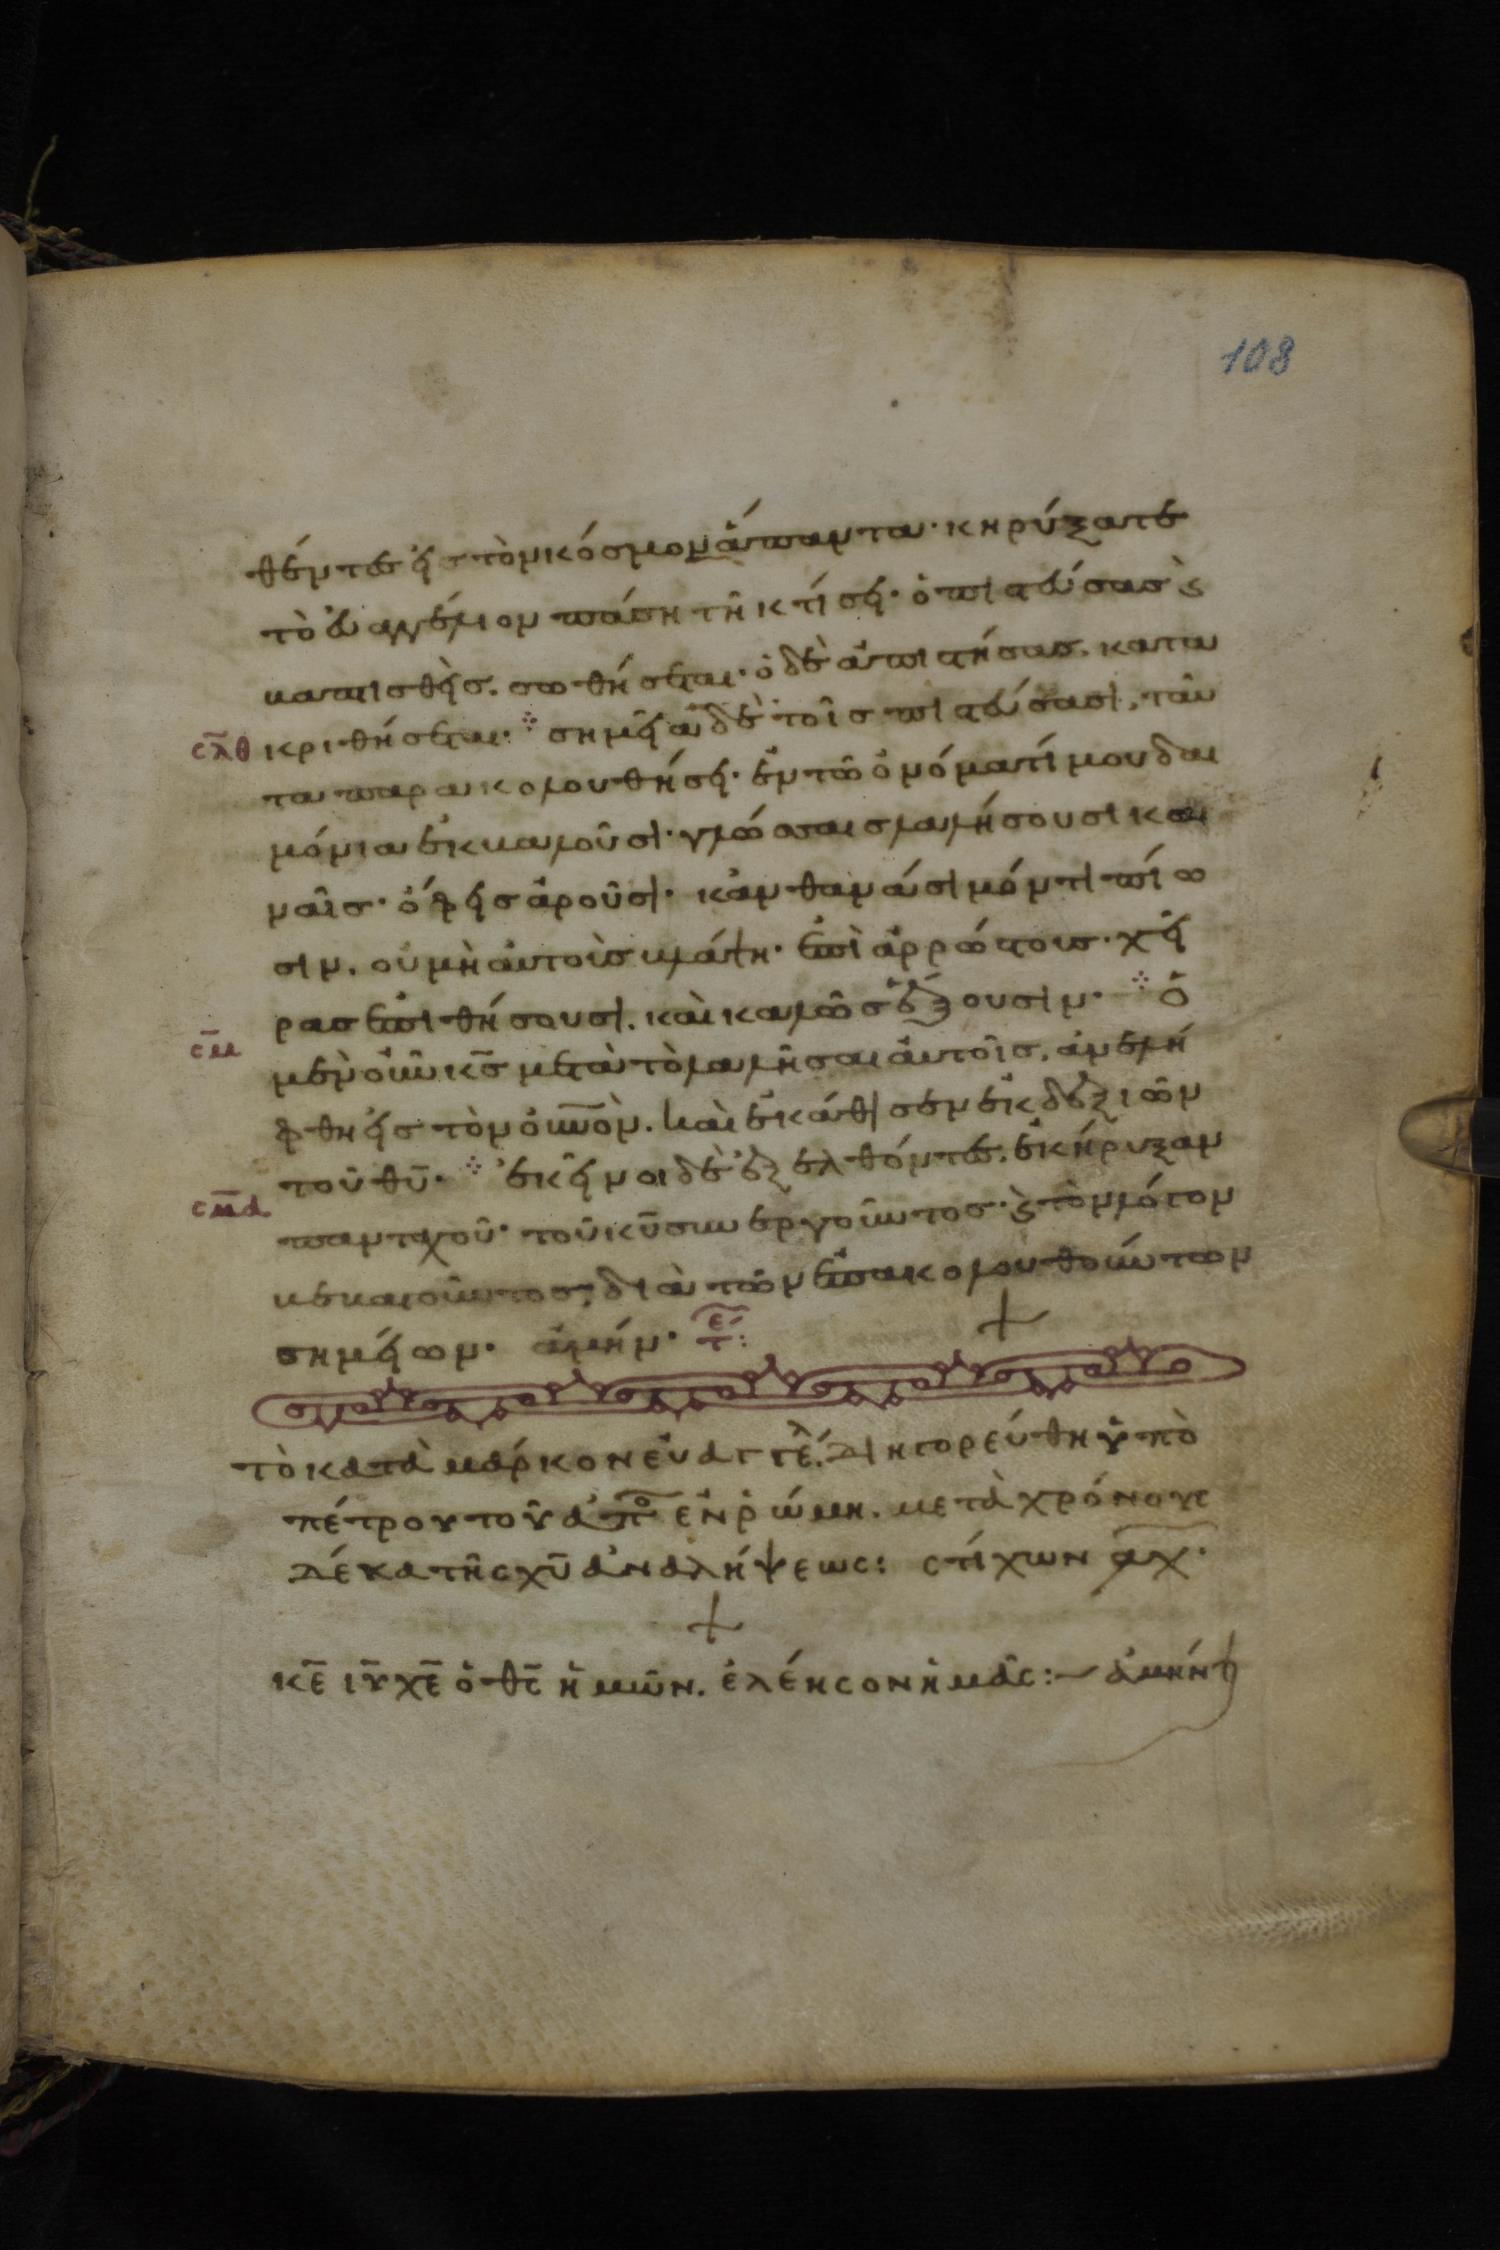 108
θέντες εἰς τὸν κόσμον ἅπαντα· κηρύξατε
τὸ εὐαγγέλιον πάση τῆ κτίσει· ὁ πιστεύσας ϗ
βαπτισθεὶς. σωθήσεται· ὁ δὲ ἀπιστήσας. κατα
σλθ κριθήσεται· ⁘ σημεῖα δὲ τοῖς πιστεύσασι, ταῦ
τα παρακολουθήσει· ἐν τῶ ὀνόματί μου δαι
μόνια ἐκβαλοῦσι· γλώσσαις λαλήσουσι και
ναῖς· ὄφεις ἀροῦσι· κἂν θανάσιμόν τι πίω
σιν. οὐ μὴ αὐτοὺς βλάψη· ἐπὶ ἀρρώστους· χεῖ
ρας ἐπιθήσουσι. καὶ καλῶς ἕξουσιν· ⁘ Ὁ
σμ μὲν οὖν κ̅ς̅ μετὰ τὸ λαλῆσαι αὐτοῖς, ἀνελή
φθη εἰς τὸν ο̅υ̅ν̅ο̅ν̅. καὶ ἐκάθισεν ἐκ δεξιῶν
τοῦ θ̅υ̅· ⁘ ἐκεῖνοι δὲ ἐξελθόντες. ἐκήρυξαν
σμα πανταχοῦ· τοῦ κ̅υ̅ συνεργοῦντος· ϗ τὸν λόγον
βεβαιοῦντος, διὰ τῶν ἐπακολουθούντων
σημείων· ἀμήν· τε:
τὸ κατὰ μάρκον εὐαγγελ. διηγορεύθη ὑπὸ
πέτρου τοῦ ἀπο ἐν ῥώμη. μετὰ χρόνους
δέκα τῆς χ̅υ̅ ἀναλήψεως: στίχων ͵αχ·
κ̅ε̅ ι̅υ̅ χ̅ε̅ ὁ θ̅ς̅ ἡμῶν. ἐλέησον ἡμᾶς:~ ἀμήν